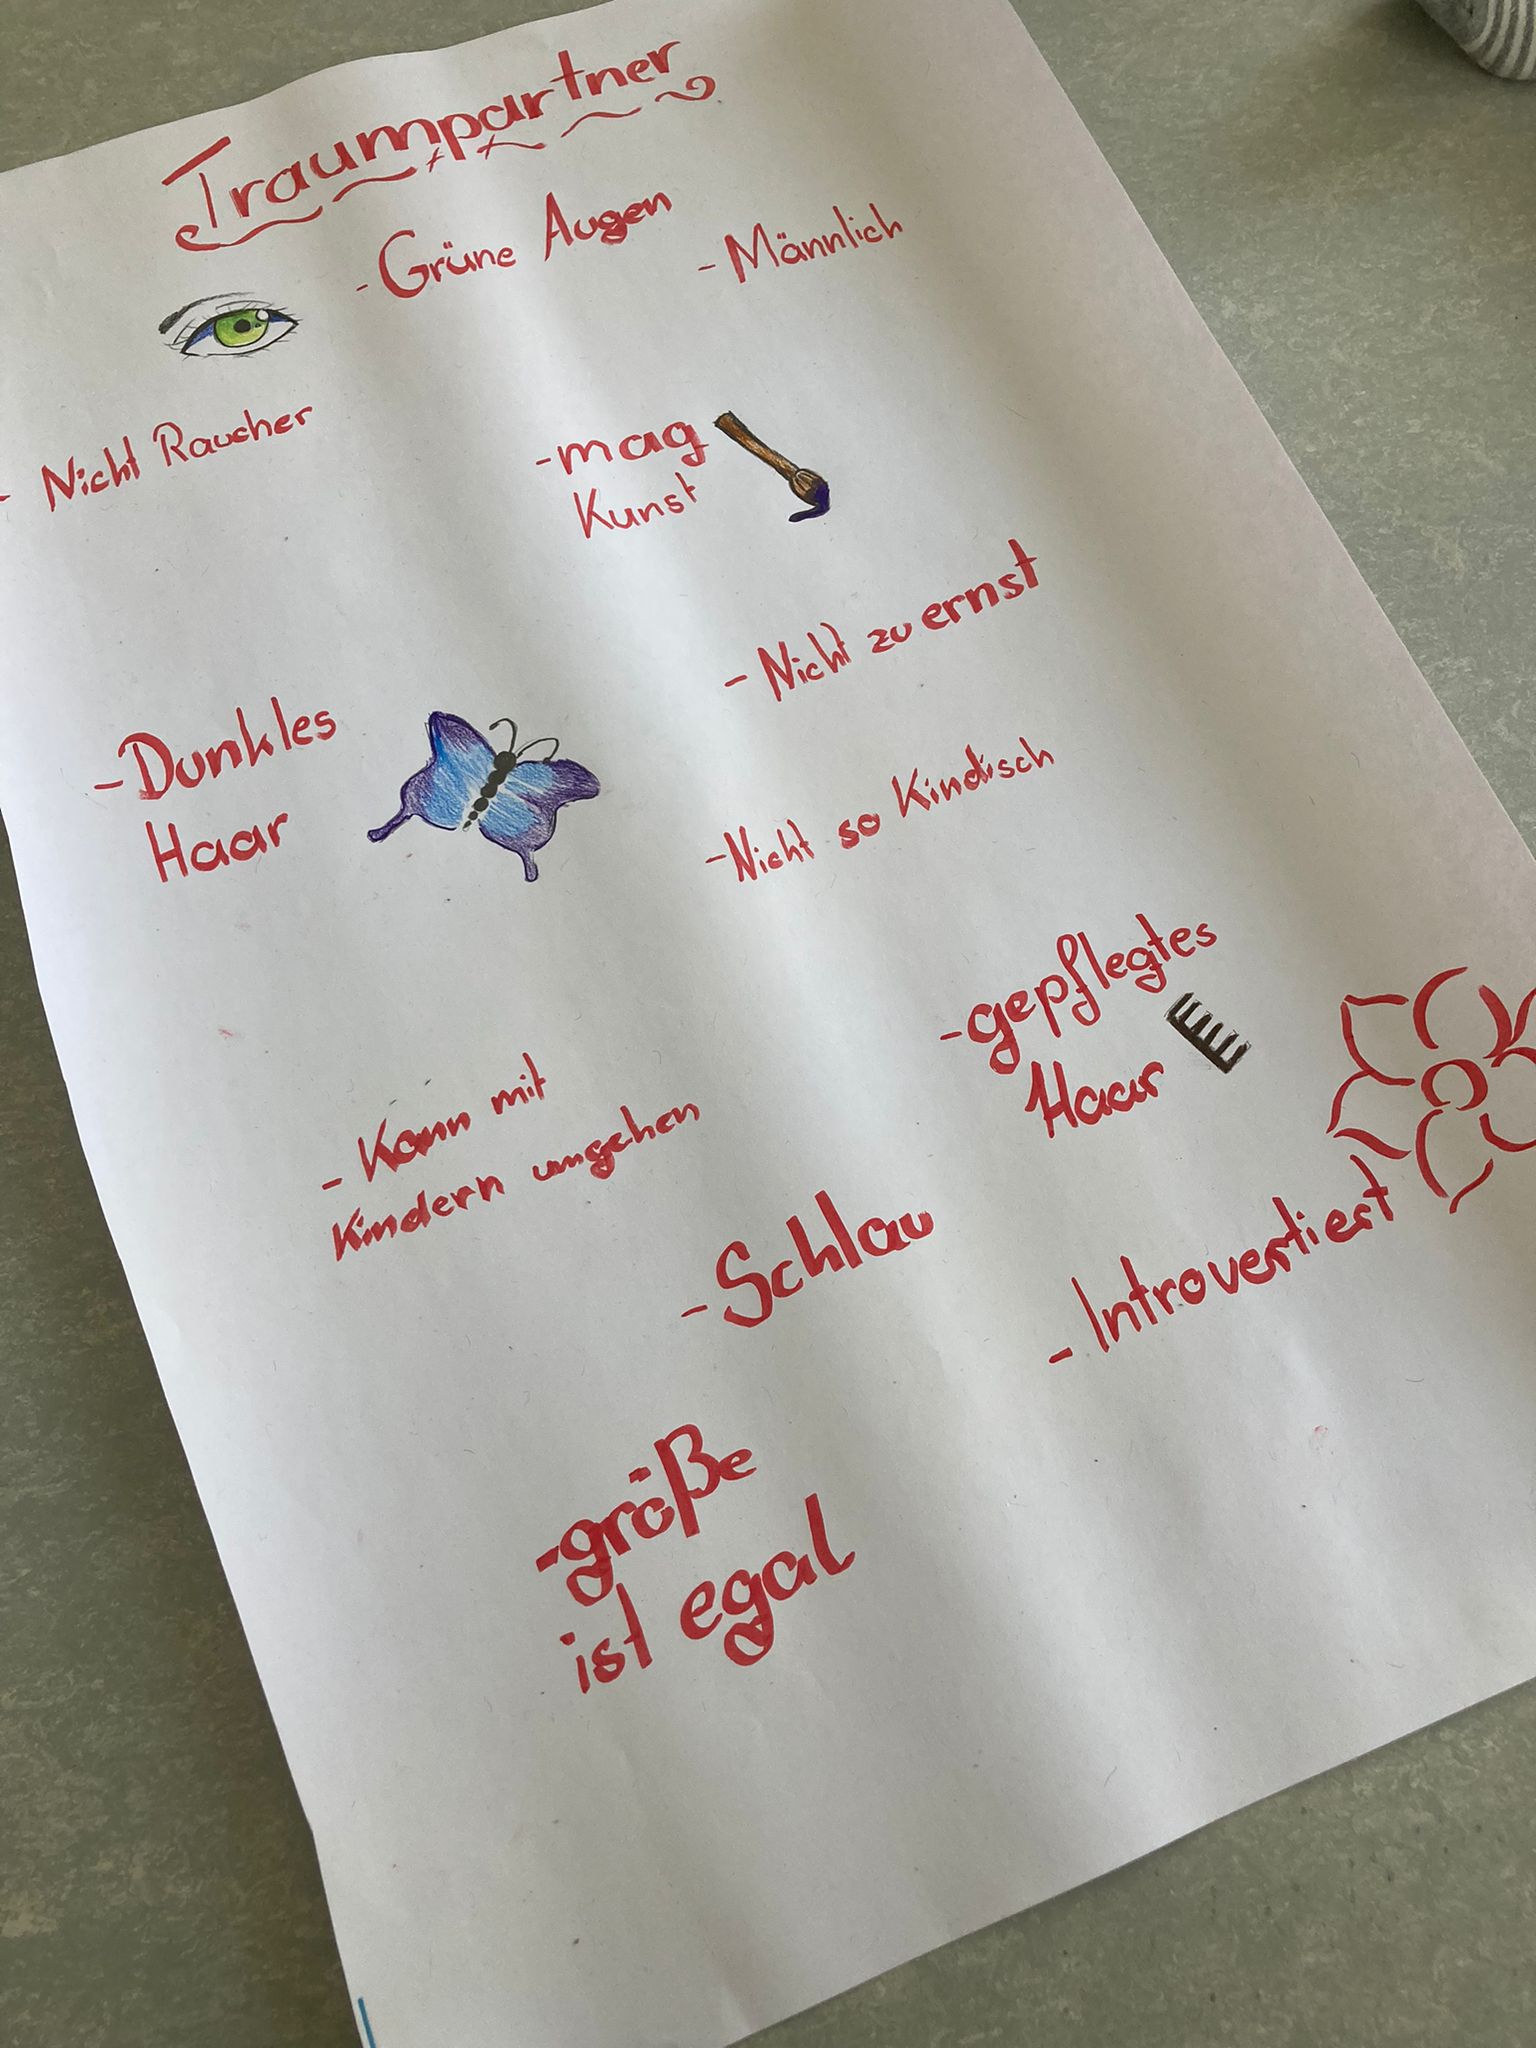 Traumpartner
- Grüne Augen
- Männlich
- Nicht Raucher
- mag
Kunst
- Nicht zu ernst
- Dunkles
Haar
- Nicht so Kindisch
- gepflegtes
Haar
- Kann mit
Kindern umgehen
- Schlau
- Introvertiert
- größe
ist egal